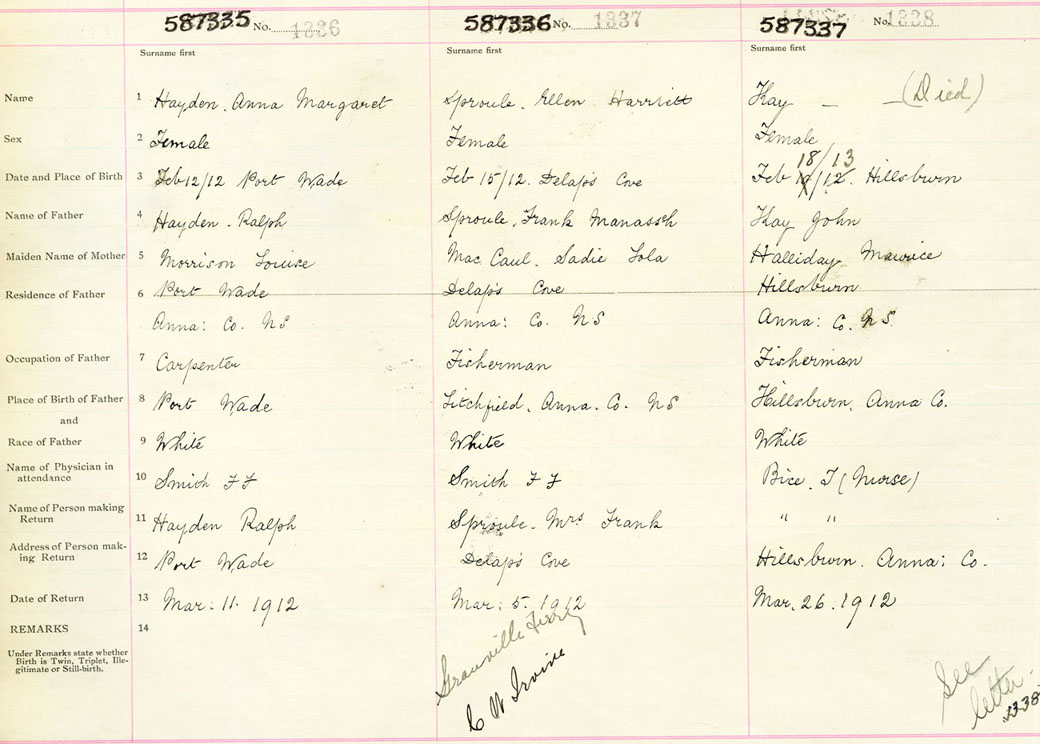 587335 No. 1336 587336 No. 1337 587337 No. 1338
Surname first Surname first Surname first
Name 1 Hayden. Anna Margaret Sproule. Ellen Harriett Kay — — (Died)
Sex 2 Female Female Female
18/13
Date and Place of Birth 3 Feb 12/12 Port Wade Feb 15/12. Delap's Cove Feb /12. Hillsburn
Name of Father 4 Hayden. Ralph Sproule. Frank Manasseh Kay John
Maiden Name of Mother 5 Morrison Louise Mac Caul. Sadie Iola Halliday Maurice
Residence of Father 6 Port Wade Delap's Cove Hillsburn
Anna: Co. NS Anna: Co. NS Anna: Co. NS
Occupation of Father 7 Carpenter Fisherman Fisherman
Place of Birth of Father 8 Port Wade Litchfield. Anna. Co. NS Hillsburn. Anna Co.
and
Race of Father 9 White White White
Name of Physician in
attendance 10 Smith F F Smith F F Bice. I (Nurse)
Name of Person making
Return 11 Hayden Ralph Sproule. Mrs Frank " "
Address of Person mak-
ing Return 12 Port Wade Delap's Cove Hillsburn. Anna: Co.
Date of Return 13 Mar: 11. 1912 Mar: 5. 1912 Mar. 26. 1912
REMARKS 14
Under Remarks state whether
Birth is Twin, Triplet, Ille-
gitimate or Still-birth.
Granville Ferry
C W Irvine
See
letter
1338